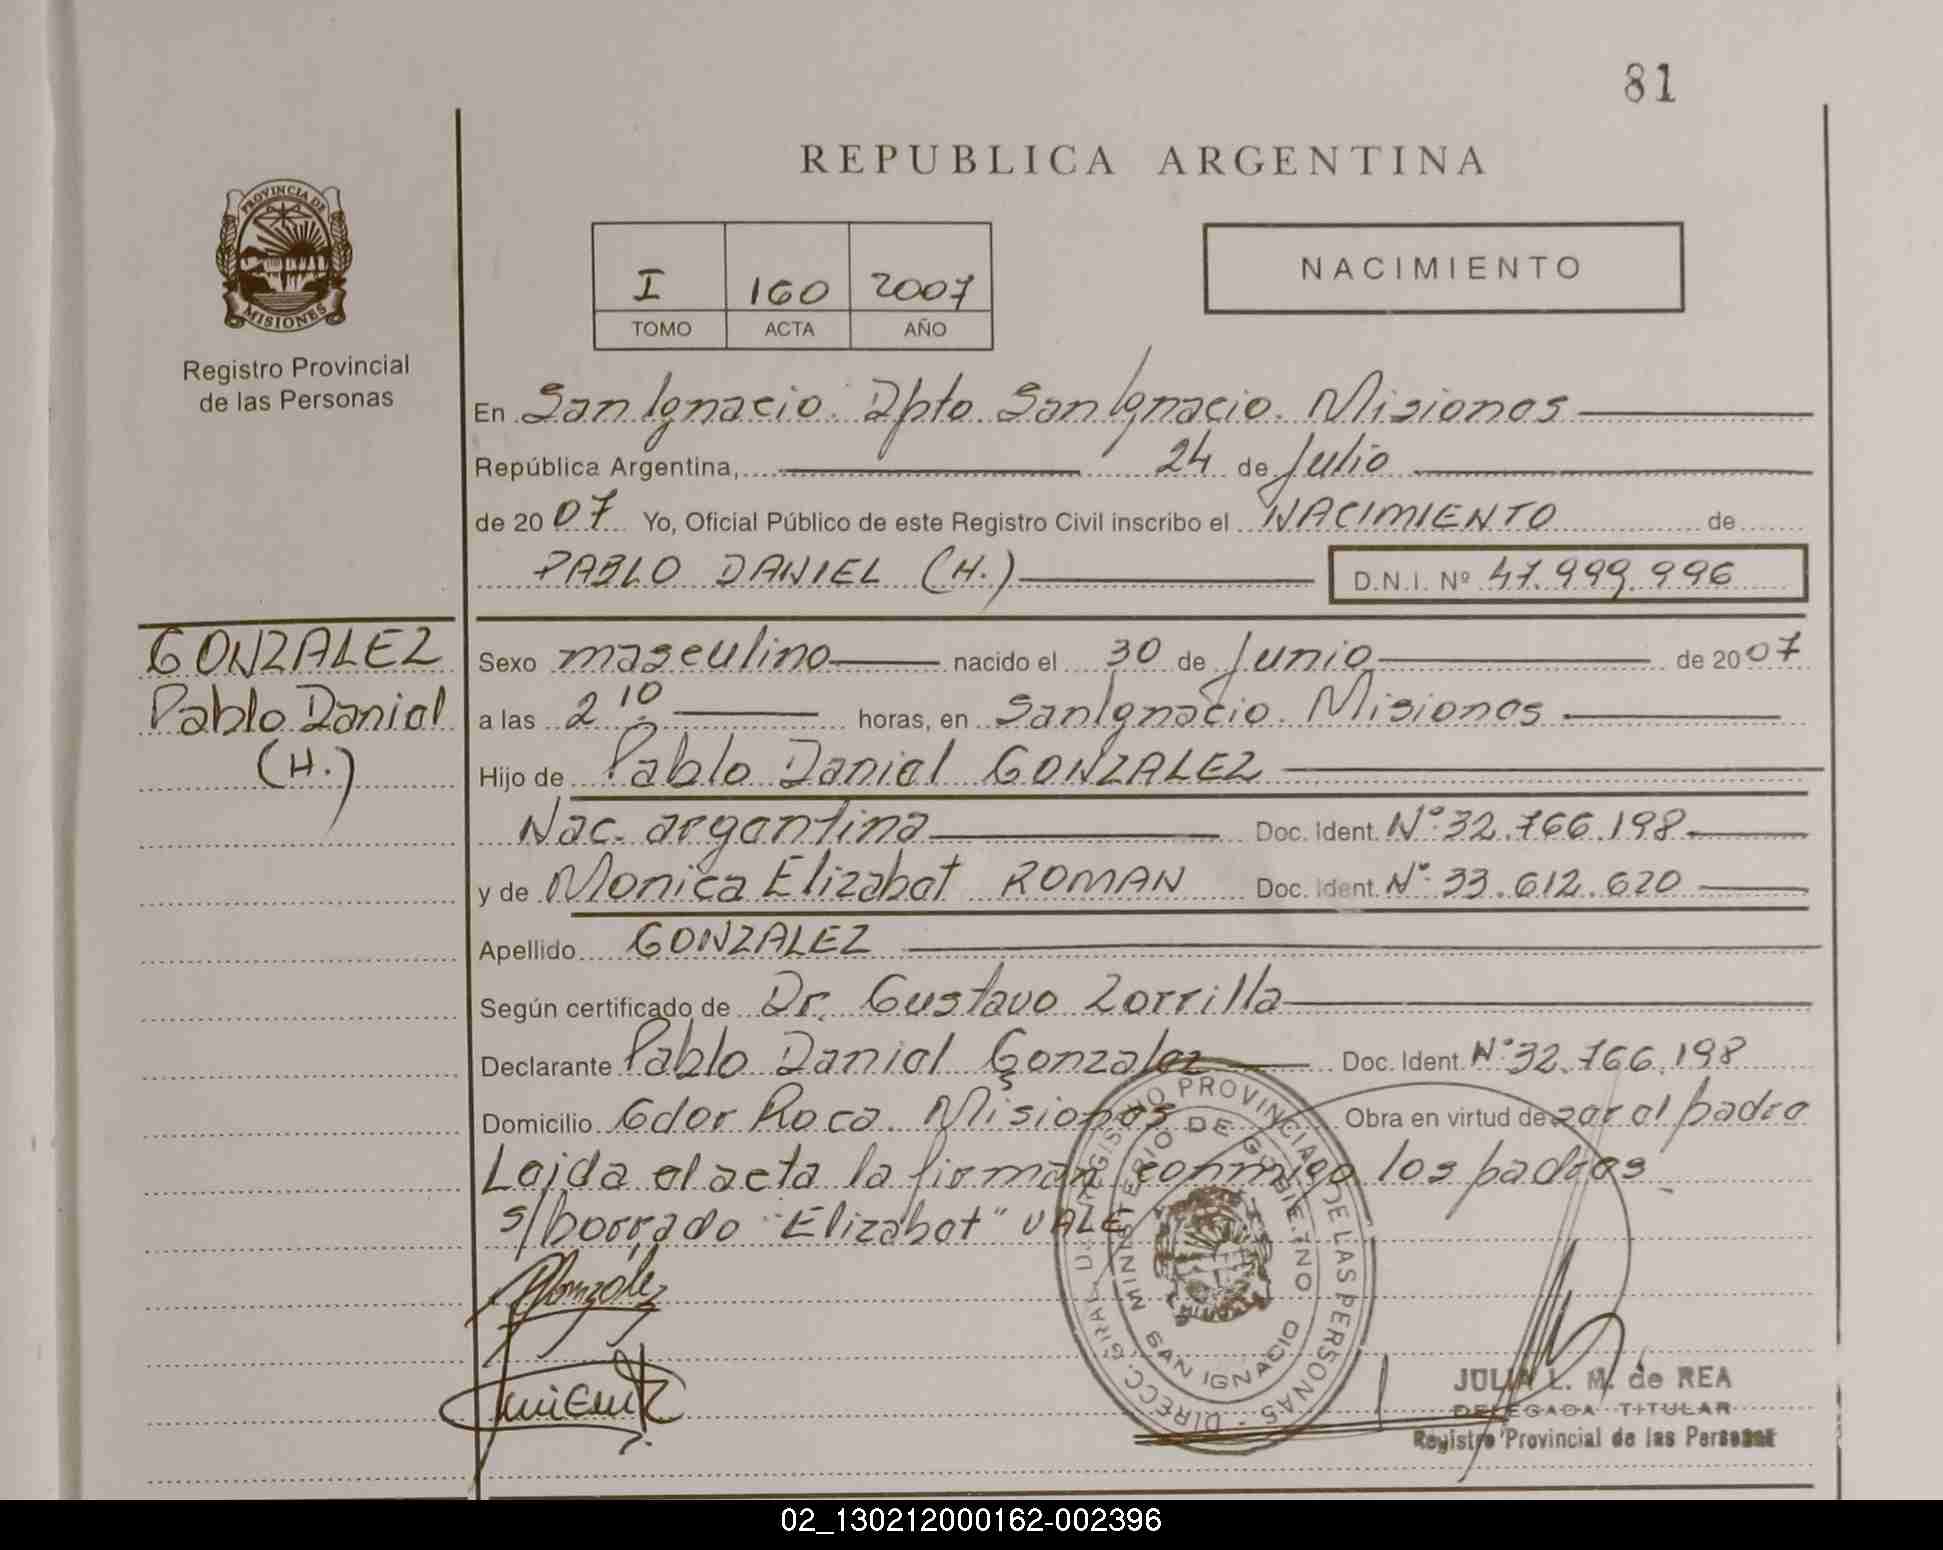 81
REPUBLICA ARGENTINA
PROVINCIA DE
MISIONES
Registro Provincial
de las Personas
I 160 2007
TOMO ACTA AÑO
NACIMIENTO
En San Ignacio. Dpto. San Ignacio. Misiones
República Argentina, 24 de Julio
de 2007 Yo, Oficial Público de este Registro Civil inscribo el NACIMIENTO de
PABLO DANIEL (H.) D.N.I. Nº 47.999.996
GONZALEZ
Pablo Daniel
(H.)
Sexo masculino nacido el 30 de Junio de 2007
a las 2 10 horas, en San Ignacio. Misiones
Hijo de Pablo Daniel GONZALEZ
Nac. argentina Doc. Ident. Nº 32.766.198
y de Monica Elizabet ROMAN Doc. Ident. Nº 33.612.620
Apellido GONZALEZ
Según certificado de Dr. Gustavo Zorrilla
Declarante Pablo Daniel Gonzalez Doc. Ident. Nº 32.766.198
Domicilio Gdor Roca. Misiones Obra en virtud de ser el padre
Leida el acta la firman conmigo los padres
s/borrado "Elizabet" VALE
DIRECC. GRAL. DE REGISTRO PROVINCIAL DE LAS PERSONAS
MINISTERIO DE GOBIERNO
SAN IGNACIO
Gonzalez
JULIA L. M. de REA
DELEGADA TITULAR
Registro Provincial de las Personas
02_130212000162-002396